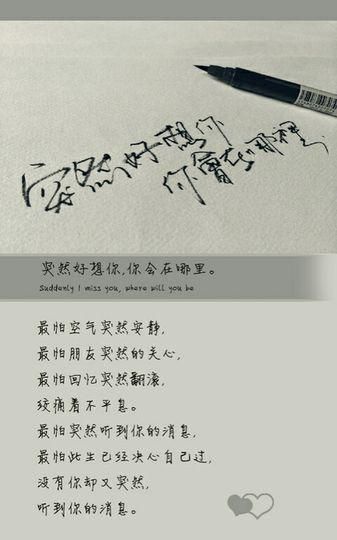 突然好想你
你會在哪裡
突然好想你,你会在哪里。
Suddenly I miss you, where will you be
最怕空气突然安静,
最怕朋友突然的关心,
最怕回忆突然翻滚,
绞痛着不平息。
最怕突然听到你的消息,
最怕此生已经决心自己过,
没有你却又突然,
听到你的消息。